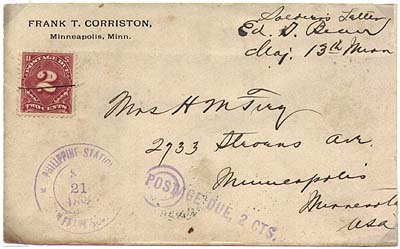 FRANK T. CORRISTON,
Minneapolis, Minn.
Soldier's Letter
Ed. S.
Maj. 13th Minn
U S
POSTAGE DUE
2
TWO CENTS
Mrs H M
2933 Stevens Ave.
Minneapolis
Minnesota
USA
PHILIPPINE STATION
21
POSTAGE DUE, 2 CTS.